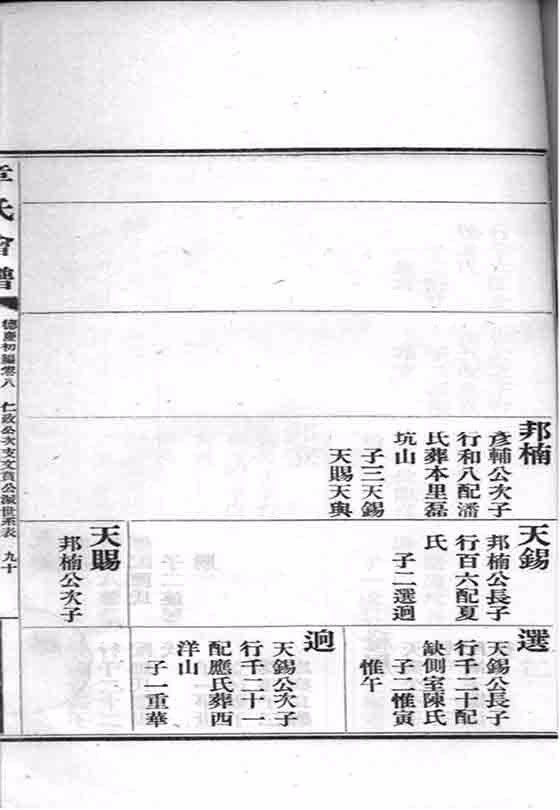 邦楠
彦輔公次子
行和八配潘
氏葬本里磊
坑山
子三天錫
天賜天與
天錫
邦楠公長子
行百六配夏
氏
子二選迥
天賜
邦楠公次子
選
天錫公長子
行千二十配
缺側室陳氏
子二惟寅
惟午
迥
天錫公次子
行千二十一
配應氏葬西
洋山
子一重華
氏會譜
德慶初編卷八
仁政公次支文貢公派世系表
九十